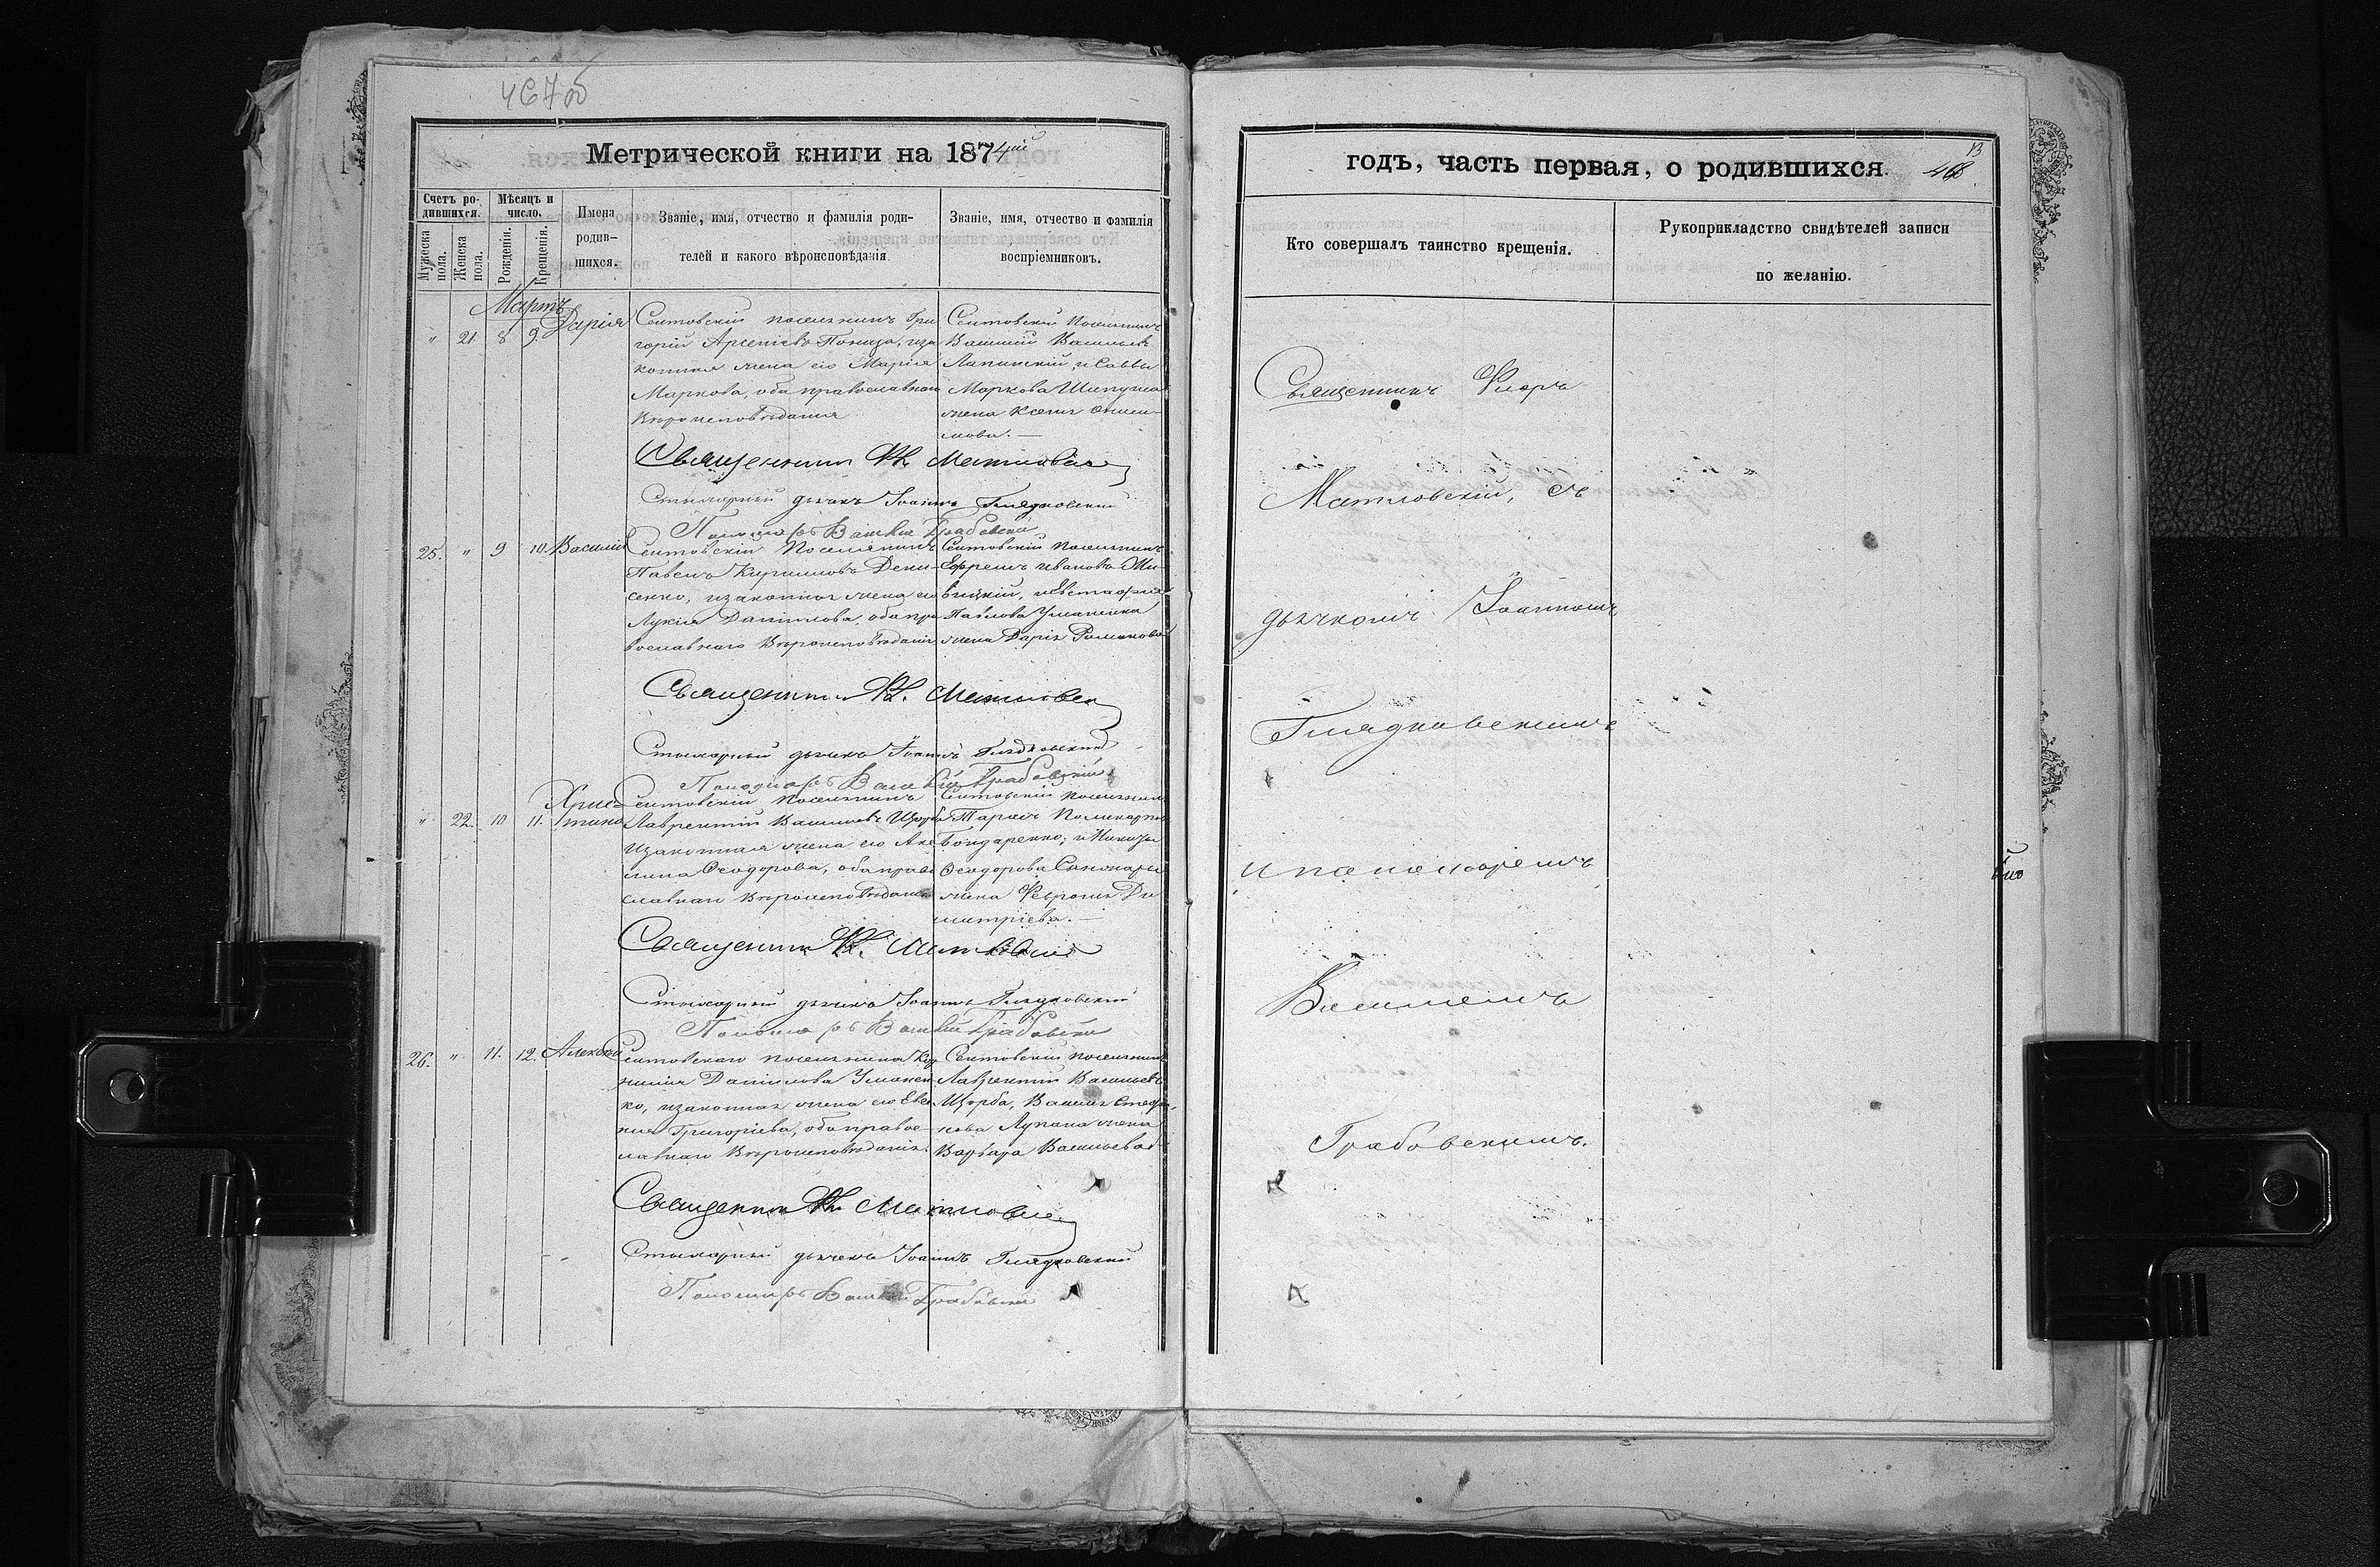 467об
Метрической книги на 1874ый
Счетъ родившихся.
Мѣсяцъ и число.
Мужеска пола.
Женска пола.
Рожденія.
Крещенія.
Имена родив-
шихся.
Званіе, имя, отчество и фамилія роди-
телей и какого вѣроисповѣданія.
Званіе, имя, отчество и фамилія
воспріемниковъ.
Мартъ
" 21. 8 9. Дарія
Сентовскій поселянинъ Гри
горій Арсеніевъ иза
конная жена его Марія
Маркова, оба православнаго
Вѣроисповѣданія
Сентовскій Поселянинъ
Василій Васильевъ
и Саввы
Маркова
жена Ксенія Онисі-
мова. —
Священникъ Матловскій
Стихарный дьячекъ Іоаннъ Глядковскій
Пономарь Василій Грабовскій
25. " 9 10. Василій
Сентовскій Поселянинъ
Павелъ Кирилловъ Дени-
сенко, изаконная жена его
Лукія Даніилова, оба пра
вославнаго Вѣроисповѣданія
Сентовскій поселянинъ
Ефремъ Ивановъ
и Евстафія
Павлова Уманенка
жена Дарія Романова
Священникъ Матловскій
Стихарный дьячекъ Іоаннъ Глядковскій
Пономарь Василій Грабовскій
" 22. 10 11. Хрис-
тина
Сентовскій поселянинъ
Лаврентій Васильевъ Щерба
изаконная жена его Аке
лина Ѳеодорова, оба право
славнаго Вѣроисповѣданія
Сентовскій поселянинъ
Тарасъ Поликарповъ
Бондаренко, и Никиты
Ѳеодорова
жена Февронія Ди
митріева. —
Священникъ Матловскій
Стихарный дьячекъ Іоаннъ Глядковскій
Пономарь Василій Грабовскій
26. " 11. 12. Алексѣй
Сентовскаго поселянина Кор
нилія Даніилова Уманен
ко, изаконная жена его Евге
нія Григоріева, оба правос
лавнаго Вѣроисповѣданія.
Сентовскій поселянинъ
Лаврентій Васильевъ
Щерба, Василія Стефа
нова Лупана жена
Варвара Васильева
Священникъ Матловскій
Стихарный дьячекъ Іоаннъ Глядковскій
Пономарь Василій Грабовскій
годъ, часть первая, о родившихся.
468.
Кто совершалъ таинство крещенія.
Рукоприкладство свидѣтелей записи
по желанію.
Священникъ Флоръ
Матловскій, съ
дьячкомъ Іоанномъ
Глядковскимъ
и пономаремъ
Василіемъ
Грабовскимъ.